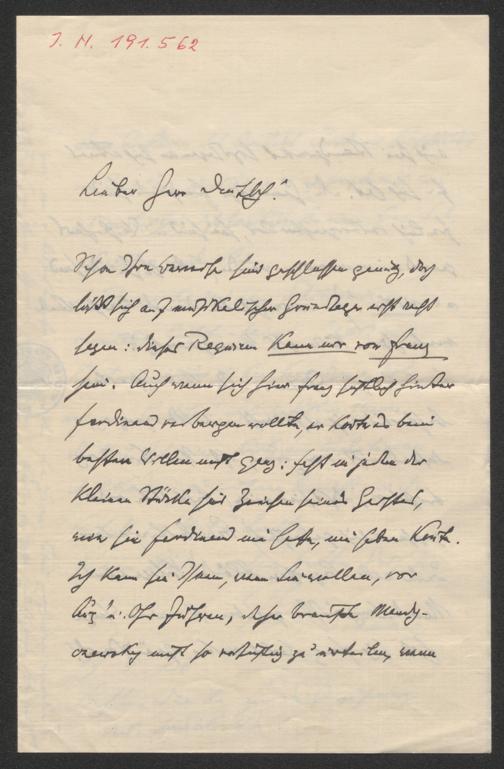 J. N. 191.562
Lieber Herr Deutsch!
Schon Ihre Versuche sind geschlossen genug, doch
läßt sich auf musikalischer Grundlage erst recht
sagen: dieses Requiem kann nur von Franz
sein. Auch wenn sich hier Franz hinter
Ferdinand verbergen wollte, er konnte es beim
besten Willen nicht ganz: fast in jedem der
kleinen Stücke sind Zeichen seines Geistes,
wie sie Ferdinand nie hatte, nie haben konnte.
Ich kann sie Ihnen, wenn Sie wollen, vor
Aug' u. Ohr führen, daher brauchte Mandy-
czewsky nicht so zu urteilen, wenn